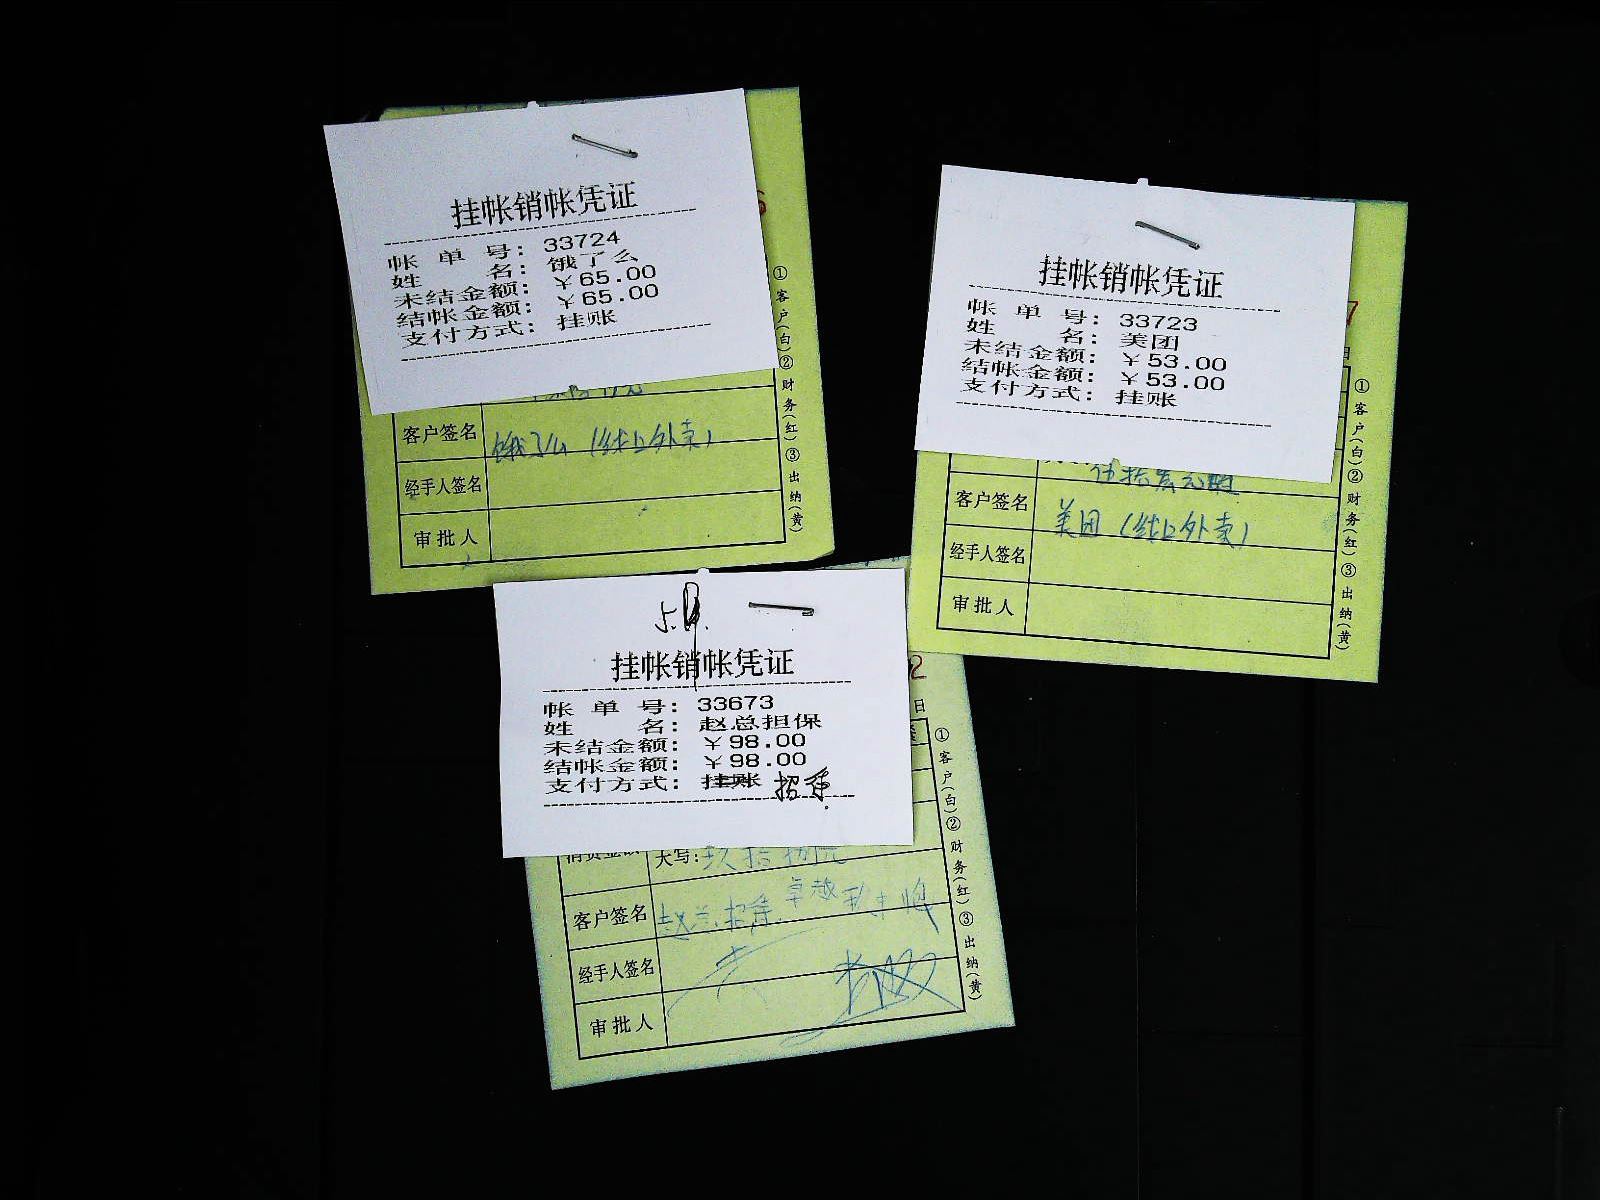 挂帐销帐凭证
帐单号：33724
姓名：饿了么
未结金额：￥65.00
结帐金额：￥65.00
支付方式：挂账
客户签名 饿了么（线上外卖）
经手人签名
审批人
①客户（白）②财务（红）③出纳（黄）
挂帐销帐凭证
帐单号：33723
姓名：美团
未结金额：￥53.00
结帐金额：￥53.00
支付方式：挂账
7
伍拾叁元整
客户签名 美团（线上外卖）
经手人签名
审批人
①客户（白）②财务（红）③出纳（黄）
挂帐销帐凭证
帐单号：33673
姓名：赵总担保
未结金额：￥98.00
结帐金额：￥98.00
支付方式：挂账 招待
2
日
大写：玖拾捌元
客户签名 赵总招待 卓越
经手人签名
审批人
①客户（白）②财务（红）③出纳（黄）